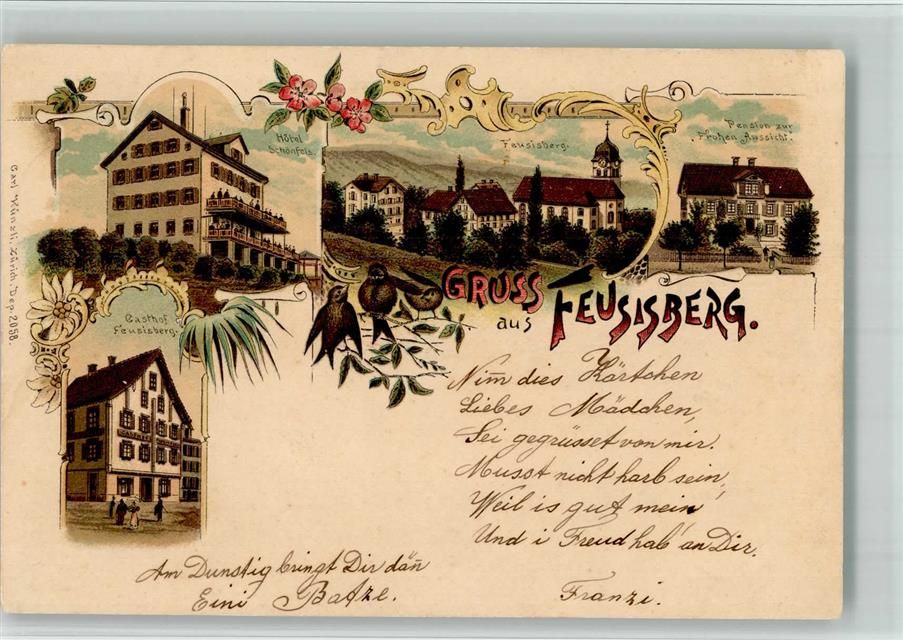 Hôtel
Schönfels.
Feusisberg.
Pension zur
"Frohen Aussicht".
Carl Künzli, Zürich, Dep. 2058.
Gasthof
Feusisberg.
GRUSS
aus FEUSISBERG.
Nimm dies Kärtchen
Liebes Mädchen,
Sei gegrüsset von mir.
Musst nicht harb sein,
Weil is gut mein
Und i Freud hab' an Dir.
Am Dunstig bringt Dir dãñ
Eini Batze.
Franzi.